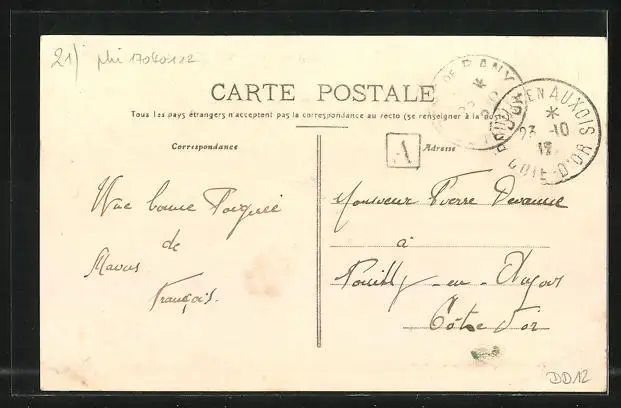 21) phi 17040112
CARTE POSTALE
Tous les pays étrangers n'acceptent pas la correspondance au recto (se renseigner à la poste)
Correspondance
A
Adresse
EN AUXOIS
23 -10
CÔTE-D'OR
Une bonne Poignée
de
Mains
François.
Monsieur Pierre
à
Pouilly-en-Auxois
Côte d'Or
DD12